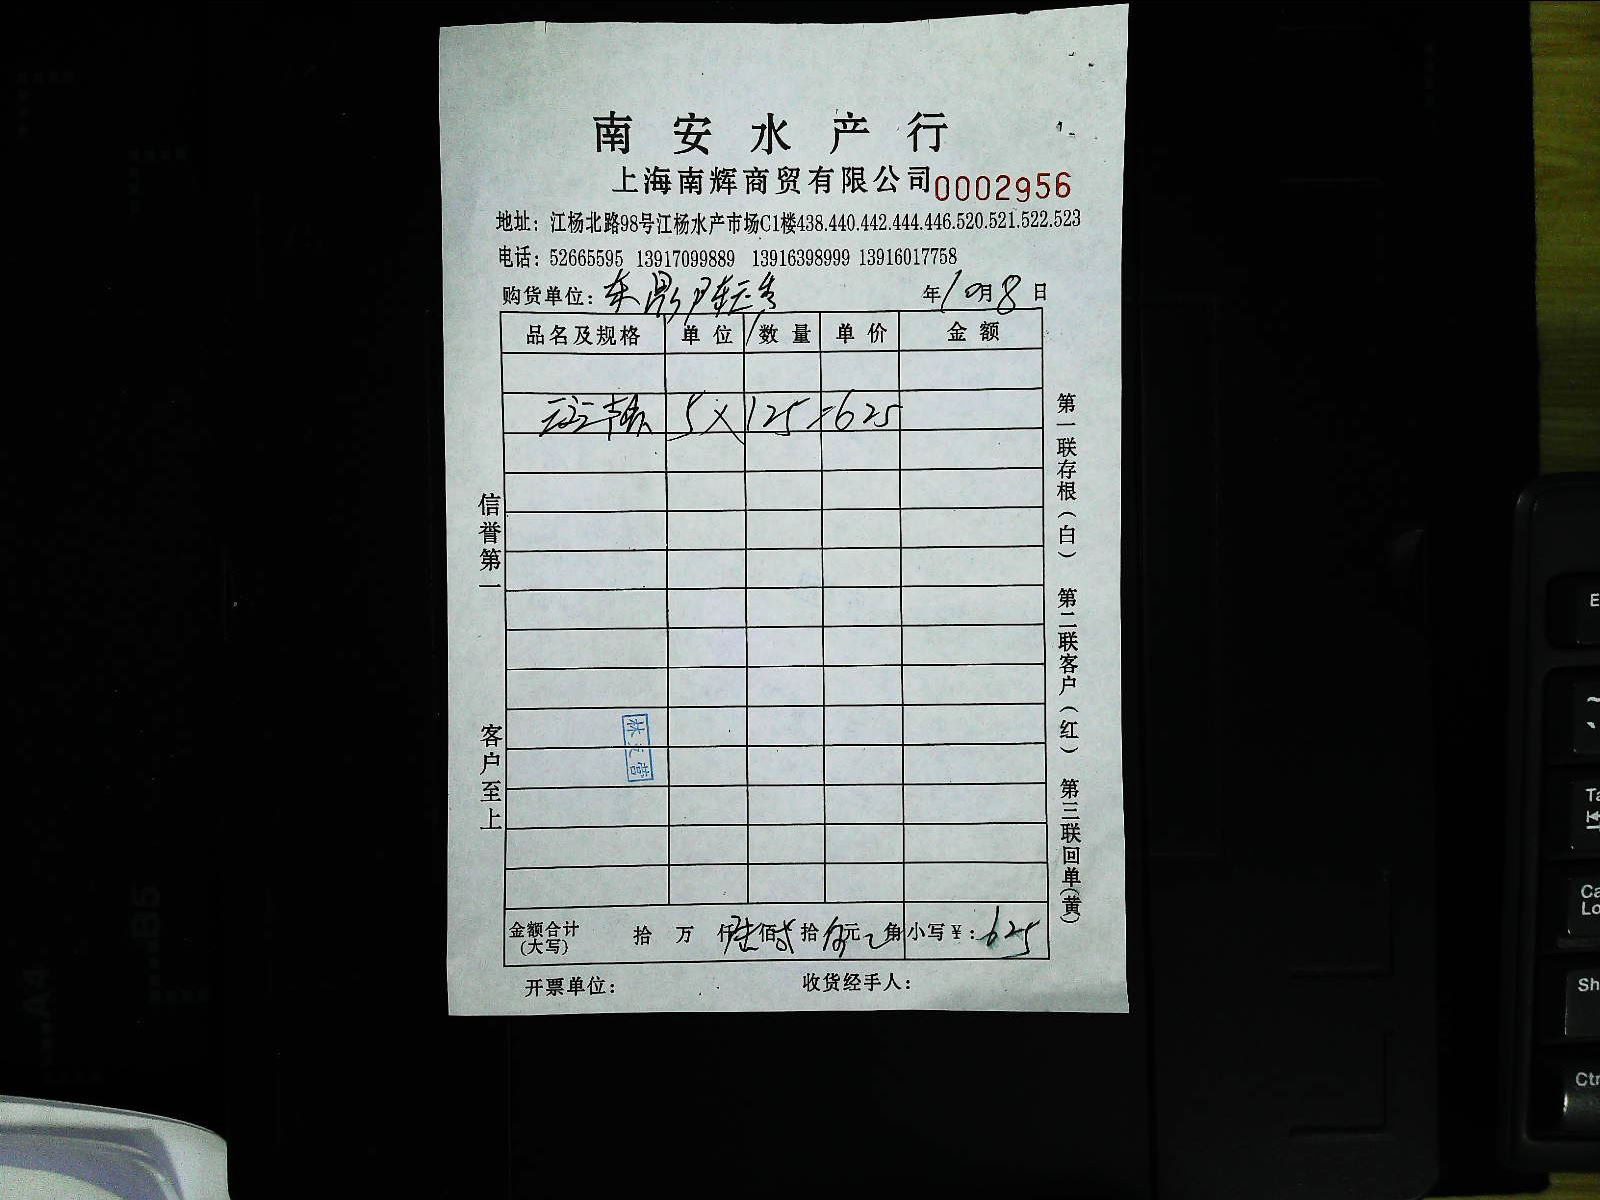 南安水产行
上海南辉商贸有限公司 0002956
地址：江杨北路98号江杨水产市场C1楼438.440.442.444.446.520.521.522.523
电话：52665595 13917099889 13916398999 13916017758
购货单位： 年10月8日
品名及规格 单位 数量 单价 金额
5×125=625
信誉第一
客户至上
第一联存根（白） 第二联客户（红） 第三联回单（黄）
金额合计（大写） 拾 万 仟陆佰贰拾伍元 角 小写￥：625
开票单位： 收货经手人：
E
Ta
Ca
Lo
Sh
Ctr
A4
B5